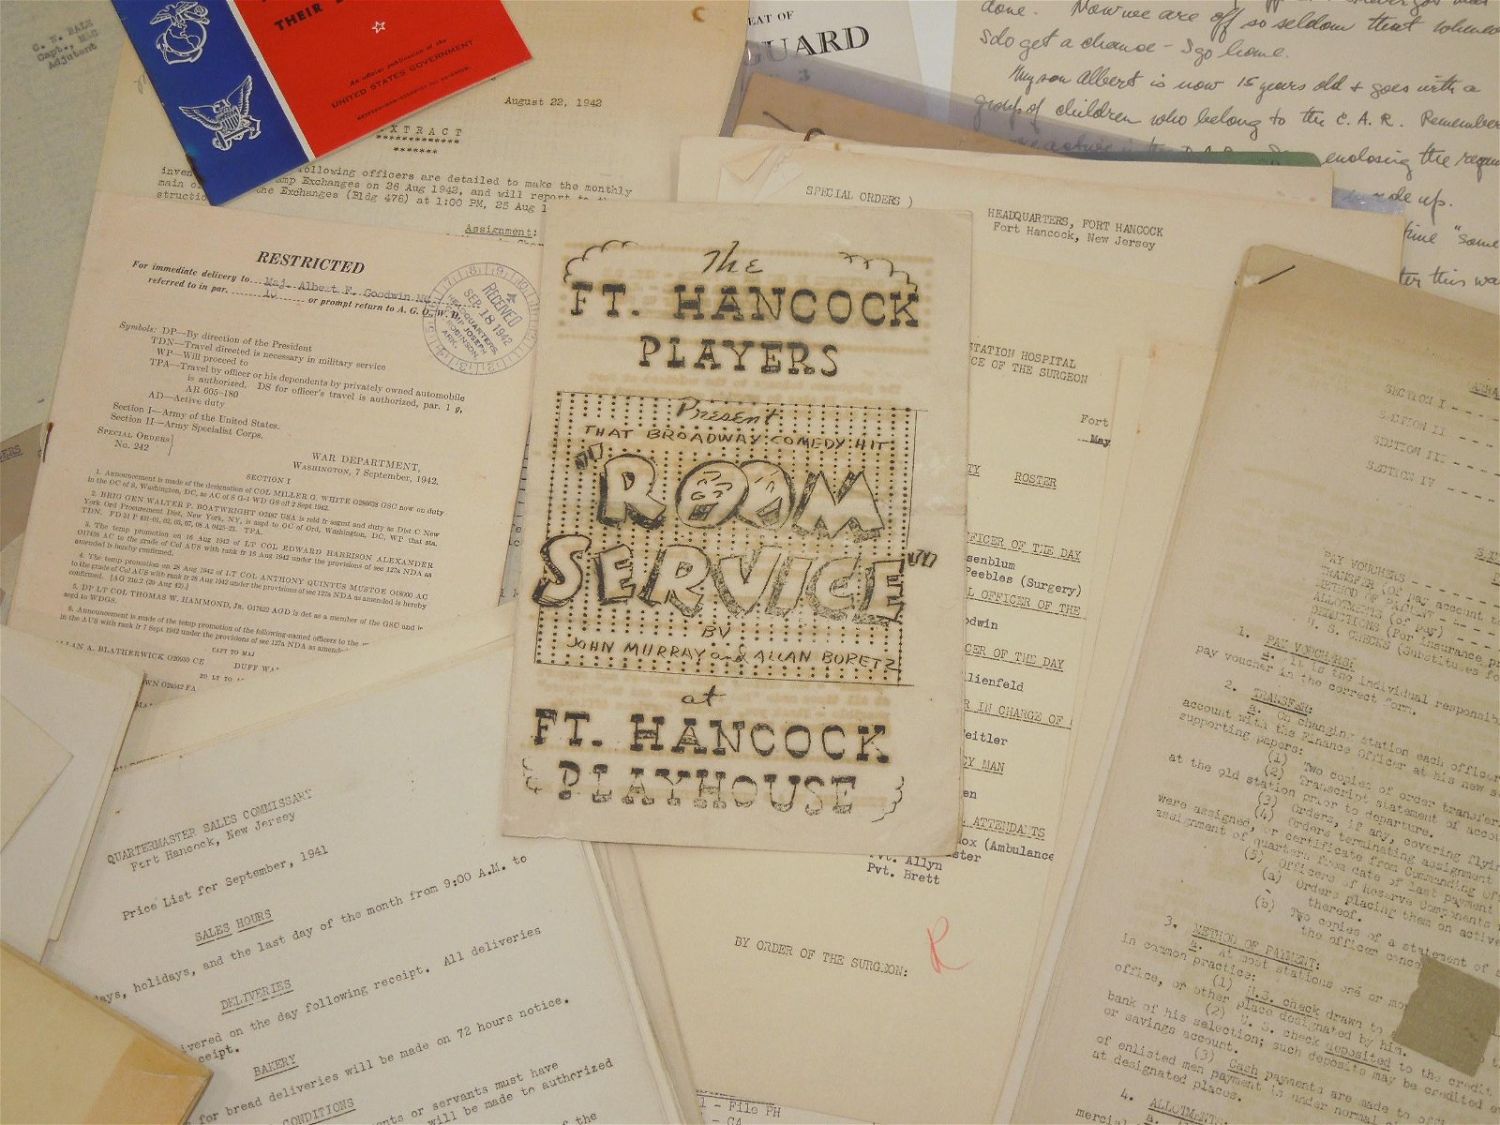 G. N. BALE
Capt., MAC
Adjutant
THEIR
An official publication of the
UNITED STATES GOVERNMENT
EAT OF
GUARD
3
done. Now we are off so seldom that
I do get a chance - I go home.
My son Albert is now 15 years old + goes with a
group of children who belong to the C.A.R. Remember
enclosing the
rode up.
"some
ter this wa
August 22, 1942
EXTRACT
*******
following officers are detailed to make the monthly
mp Exchanges on 26 Aug 1942, and will report to
the Exchanges (Bldg 476) at 1:00 PM, 25 Aug 1
Assignment:
RESTRICTED
For immediate delivery to Maj. Albert F. Goodwin
referred to in par. 10 or prompt return to A. G. O., W. D.
RECEIVED
SEP 18 1942
HEADQUARTERS,
CAMP JOSEPH
T. ROBINSON,
ARK.
Symbols: DP—By direction of the President
TDN—Travel directed is necessary in military service
WP—Will proceed to
TPA—Travel by officer or his dependents by privately owned automobile
is authorized. DS for officer's travel is authorized, par. 1 g,
AR 605-180
AD—Active duty
Section I—Army of the United States.
Section II—Army Specialist Corps.
SPECIAL ORDERS
No. 242
WAR DEPARTMENT,
WASHINGTON, 7 September, 1942.
SECTION I
1. Announcement is made of the designation of COL MILLER G. WHITE GSC now on duty
in the OC of S, Washington, DC, as AC of S G-1 WD GS eff 2 Sept 1942.
2. BRIG GEN WALTER P. BOATWRIGHT USA is reld fr asgmt and duty as Dist C New
York Ord Procurement Dist, New York, NY, is asgd to OC of Ord, Washington, DC, WP that sta.
3. The temp promotion on 16 Aug 1942 of LT COL EDWARD HARRISON ALEXANDER
AC to the grade of Col AUS with rank fr 16 Aug 1942 under the provisions of sec 127a NDA as
amended is hereby confirmed.
4. The temp promotion on 28 Aug 1942 of LT COL ANTHONY QUINTUS MUSTOE AC
to the grade of Col AUS with rank fr 28 Aug 1942 under the provisions of sec 127a NDA as amended is hereby
confirmed.
5. DP LT COL THOMAS W. HAMMOND, JR. AGD is det as a member of the GSC and is
asgd to WDGS.
6. Announcement is made of the temp promotion of the following-named officers to the
in the AUS with rank fr 7 Sept 1942 under the provisions of sec 127a NDA as
CAPT TO MAJ
LAN A. BLATHERWICK CE
DUFF
2D LT TO
SPECIAL ORDERS )
HEADQUARTERS, FORT HANCOCK
Fort Hancock, New Jersey
The
FT. HANCOCK
PLAYERS
Present
THAT BROADWAY COMEDY HIT
"ROOM
SERVICE"
BY
JOHN MURRAY and ALLAN BORETZ
at
FT. HANCOCK
PLAYHOUSE
STATION HOSPITAL
ICE OF THE SURGEON
Fort
May
TY ROSTER
FFICER OF THE DAY
senblum
Peebles (Surgery)
L OFFICER OF THE
odwin
CER OF THE DAY
ilienfeld
R IN CHARGE OF
eitler
CY MAN
en
ATTENDANTS
ox (Ambulance
ster
Pvt. Allyn
Pvt. Brett
BY ORDER OF THE SURGEON:
R
1 - File PH
- CA
QUARTERMASTER SALES COMMISSARY
Fort Hancock, New Jersey
Price List for September, 1941
SALES HOURS
days, holidays, and the last day of the month from 9:00 A.M. to
DELIVERIES
ivered on the day following receipt. All deliveries
ceipt.
BAKERY
for bread deliveries will be made on 72 hours notice.
CONDITIONS
nts or servants must have
will be made to authorized
of the
SECTION I - - - -
SECTION II - - - -
SECTION III - - - -
SECTION IV - - - -
PAY VOUCHERS - - - -
TRANSFER (of pay account
METHOD OF PAYMENT - - - -
ALLOTMENTS (of pay) - - - -
DEDUCTIONS (For insurance,
U. S. CHECKS (Substitutes fo
1. PAY VOUCHER:
a. It is the individual responsib
pay voucher in the correct form.
2. TRANSFER:
a. On changing station each officer
account with the Finance Officer at his new s
supporting papers:
(1) Two copies of order transfer
(2) Transcript statement of accou
at the old station prior to departure.
(3) Orders, if any, covering flyin
(4) Orders terminating assignment
were assigned, or certificate from Commanding Of
assignment of quarters from date of last payment
(5) Officers of Reserve Components
(a) Orders placing them on active
thereof.
(b) Two copies of a statement of s
the officer conce
3. METHOD OF PAYMENT:
a. At most stations one or mo
in common practice:
(1) U.S. check drawn to
office, or other place designated by him.
(2) U. S. check deposited to the credit
bank of his selection; such deposits may be credited
or savings account.
(3) Cash payments are made to offi
of enlisted men payment is under normal
at designated places.
4. ALLOTMENTS:
a.